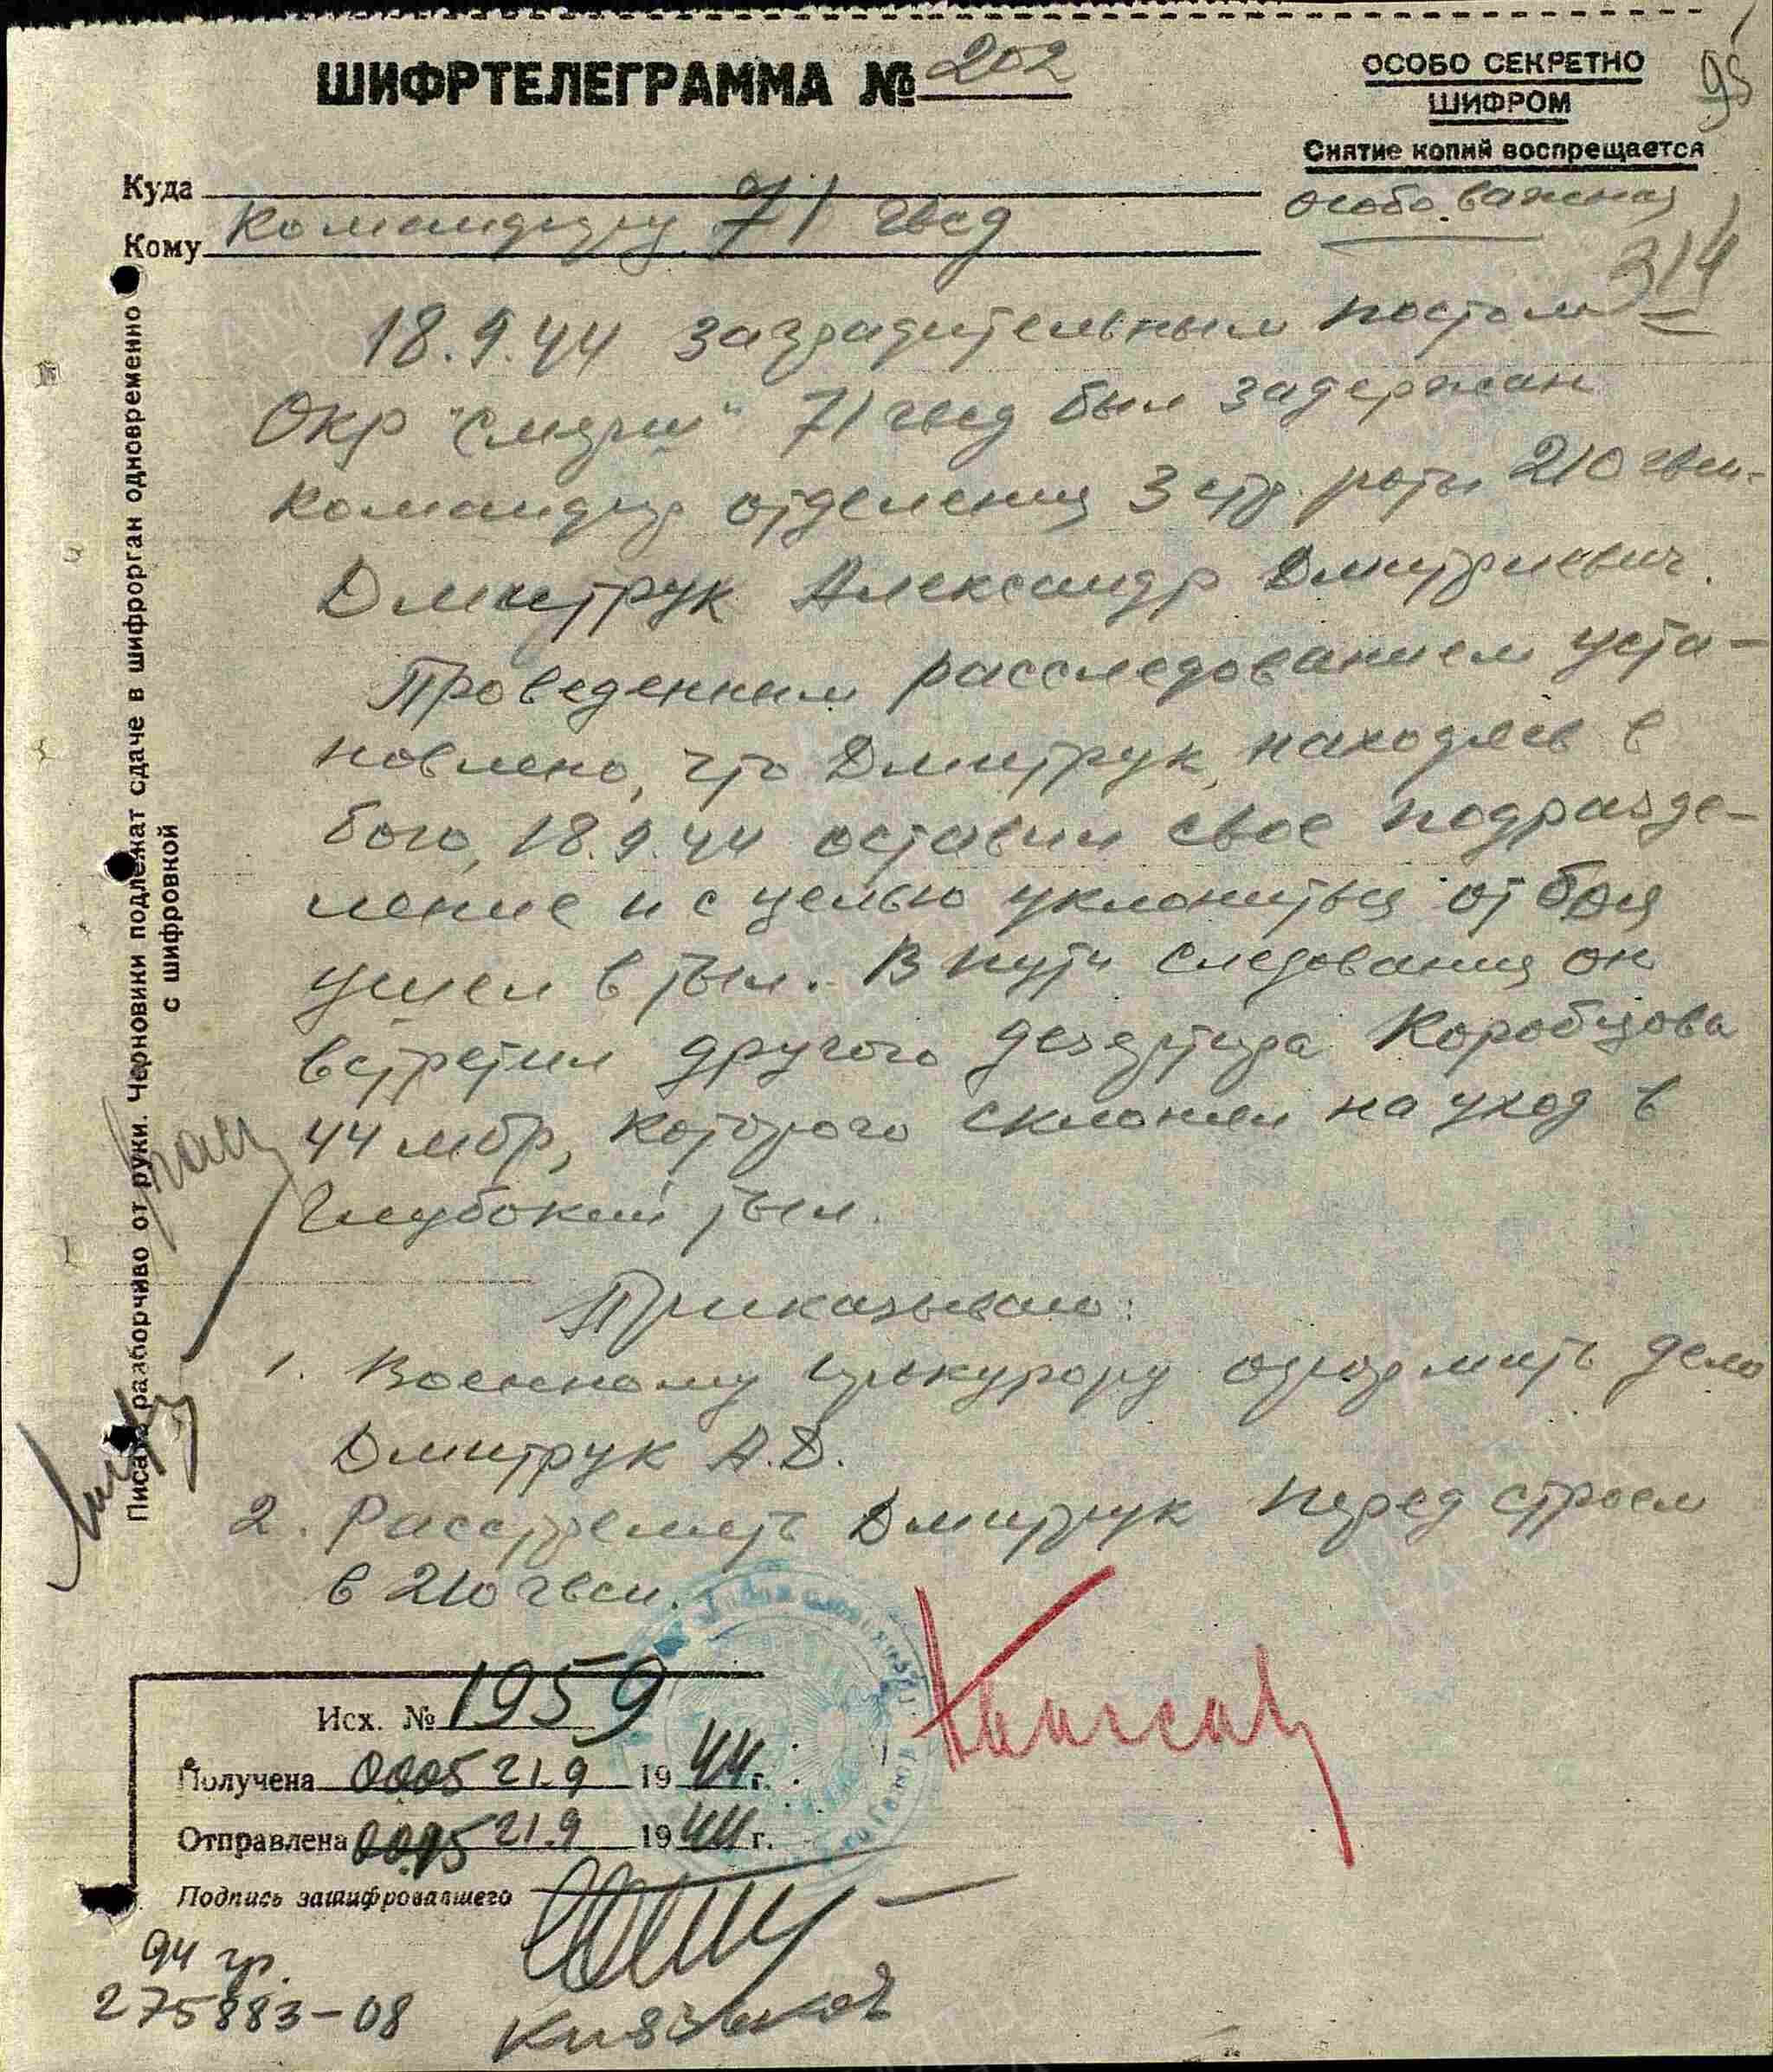 ШИФРТЕЛЕГРАММА № 202
ОСОБО СЕКРЕТНО
ШИФРОМ
Снятие копий воспрещается
95
особо важная
Куда
Кому Командиру 71 гвсд
3/4
18.9.44 заградительным постом
Окр "Смерш" 71 гвсд был задержан
командир отделения 3 стр. роты 210 гвсп-
Дмитрук Александр Дмитриевич.
Проведенным расследованием уста-
новлено, что Дмитрук, находясь в
бою, 18.9.44 оставил свое подразде-
ление и с целью уклониться от боя
ушел в тыл. В пути следования он
встретил другого дезертира Коробцова
44 мбр, которого склонял на уход в
глубокий тыл.
Приказываю:
1. Военному прокурору оформить дело
Дмитрук А.Д.
2. Расстрелять Дмитрук перед строем
в 210 гвсп.
Писать разборчиво от руки. Черновики подлежат сдаче в шифрорган одновременно
с шифровкой
Исх. № 1959
Получена 0005 21.9 1944 г.
Отправлена 0015 21.9 1944 г.
Подпись зашифровавшего
94 гр.
275883-08